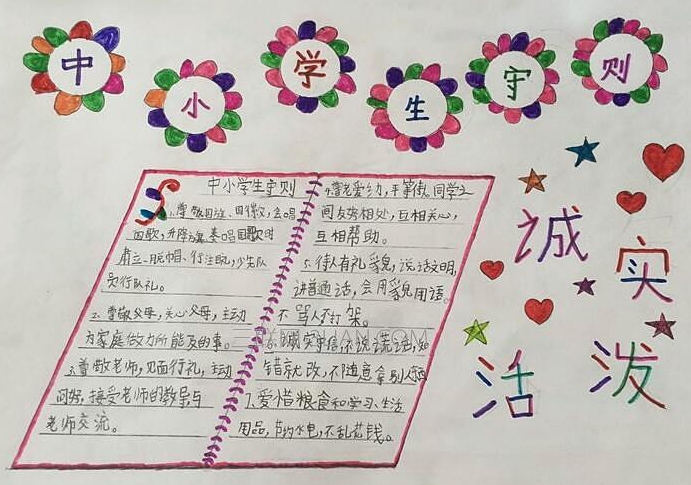 中小学生守则
中小学生守则
1.尊敬国旗、国徽,会唱
国歌,升降旗、奏唱国歌时
肃立、脱帽、行注目礼,少先队
员行队礼。
2.尊敬父母,关心父母,主动
为家庭做力所能及的事。
3.尊敬老师,见面行礼,主动
问好,接受老师的教导,与
老师交流。
4.尊老爱幼,平等待人,同学之
间友好相处,互相关心,
互相帮助。
5.待人有礼貌,说话文明,
讲普通话,会用礼貌用语。
不骂人不打架。
6.诚实守信,不说谎话,知
错就改,不随意拿别人
7.爱惜粮食和学习、生活
用品,节约水电,不乱花钱。
诚实
活泼